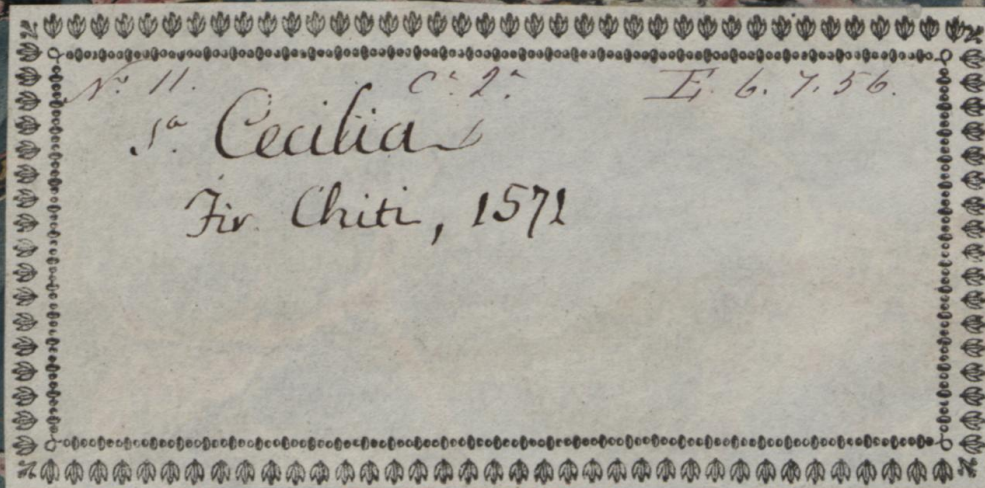 Nº 11. Cª 2ª E. 6. 7. 56.
Sª Cecilia
Fir. Chiti, 1571